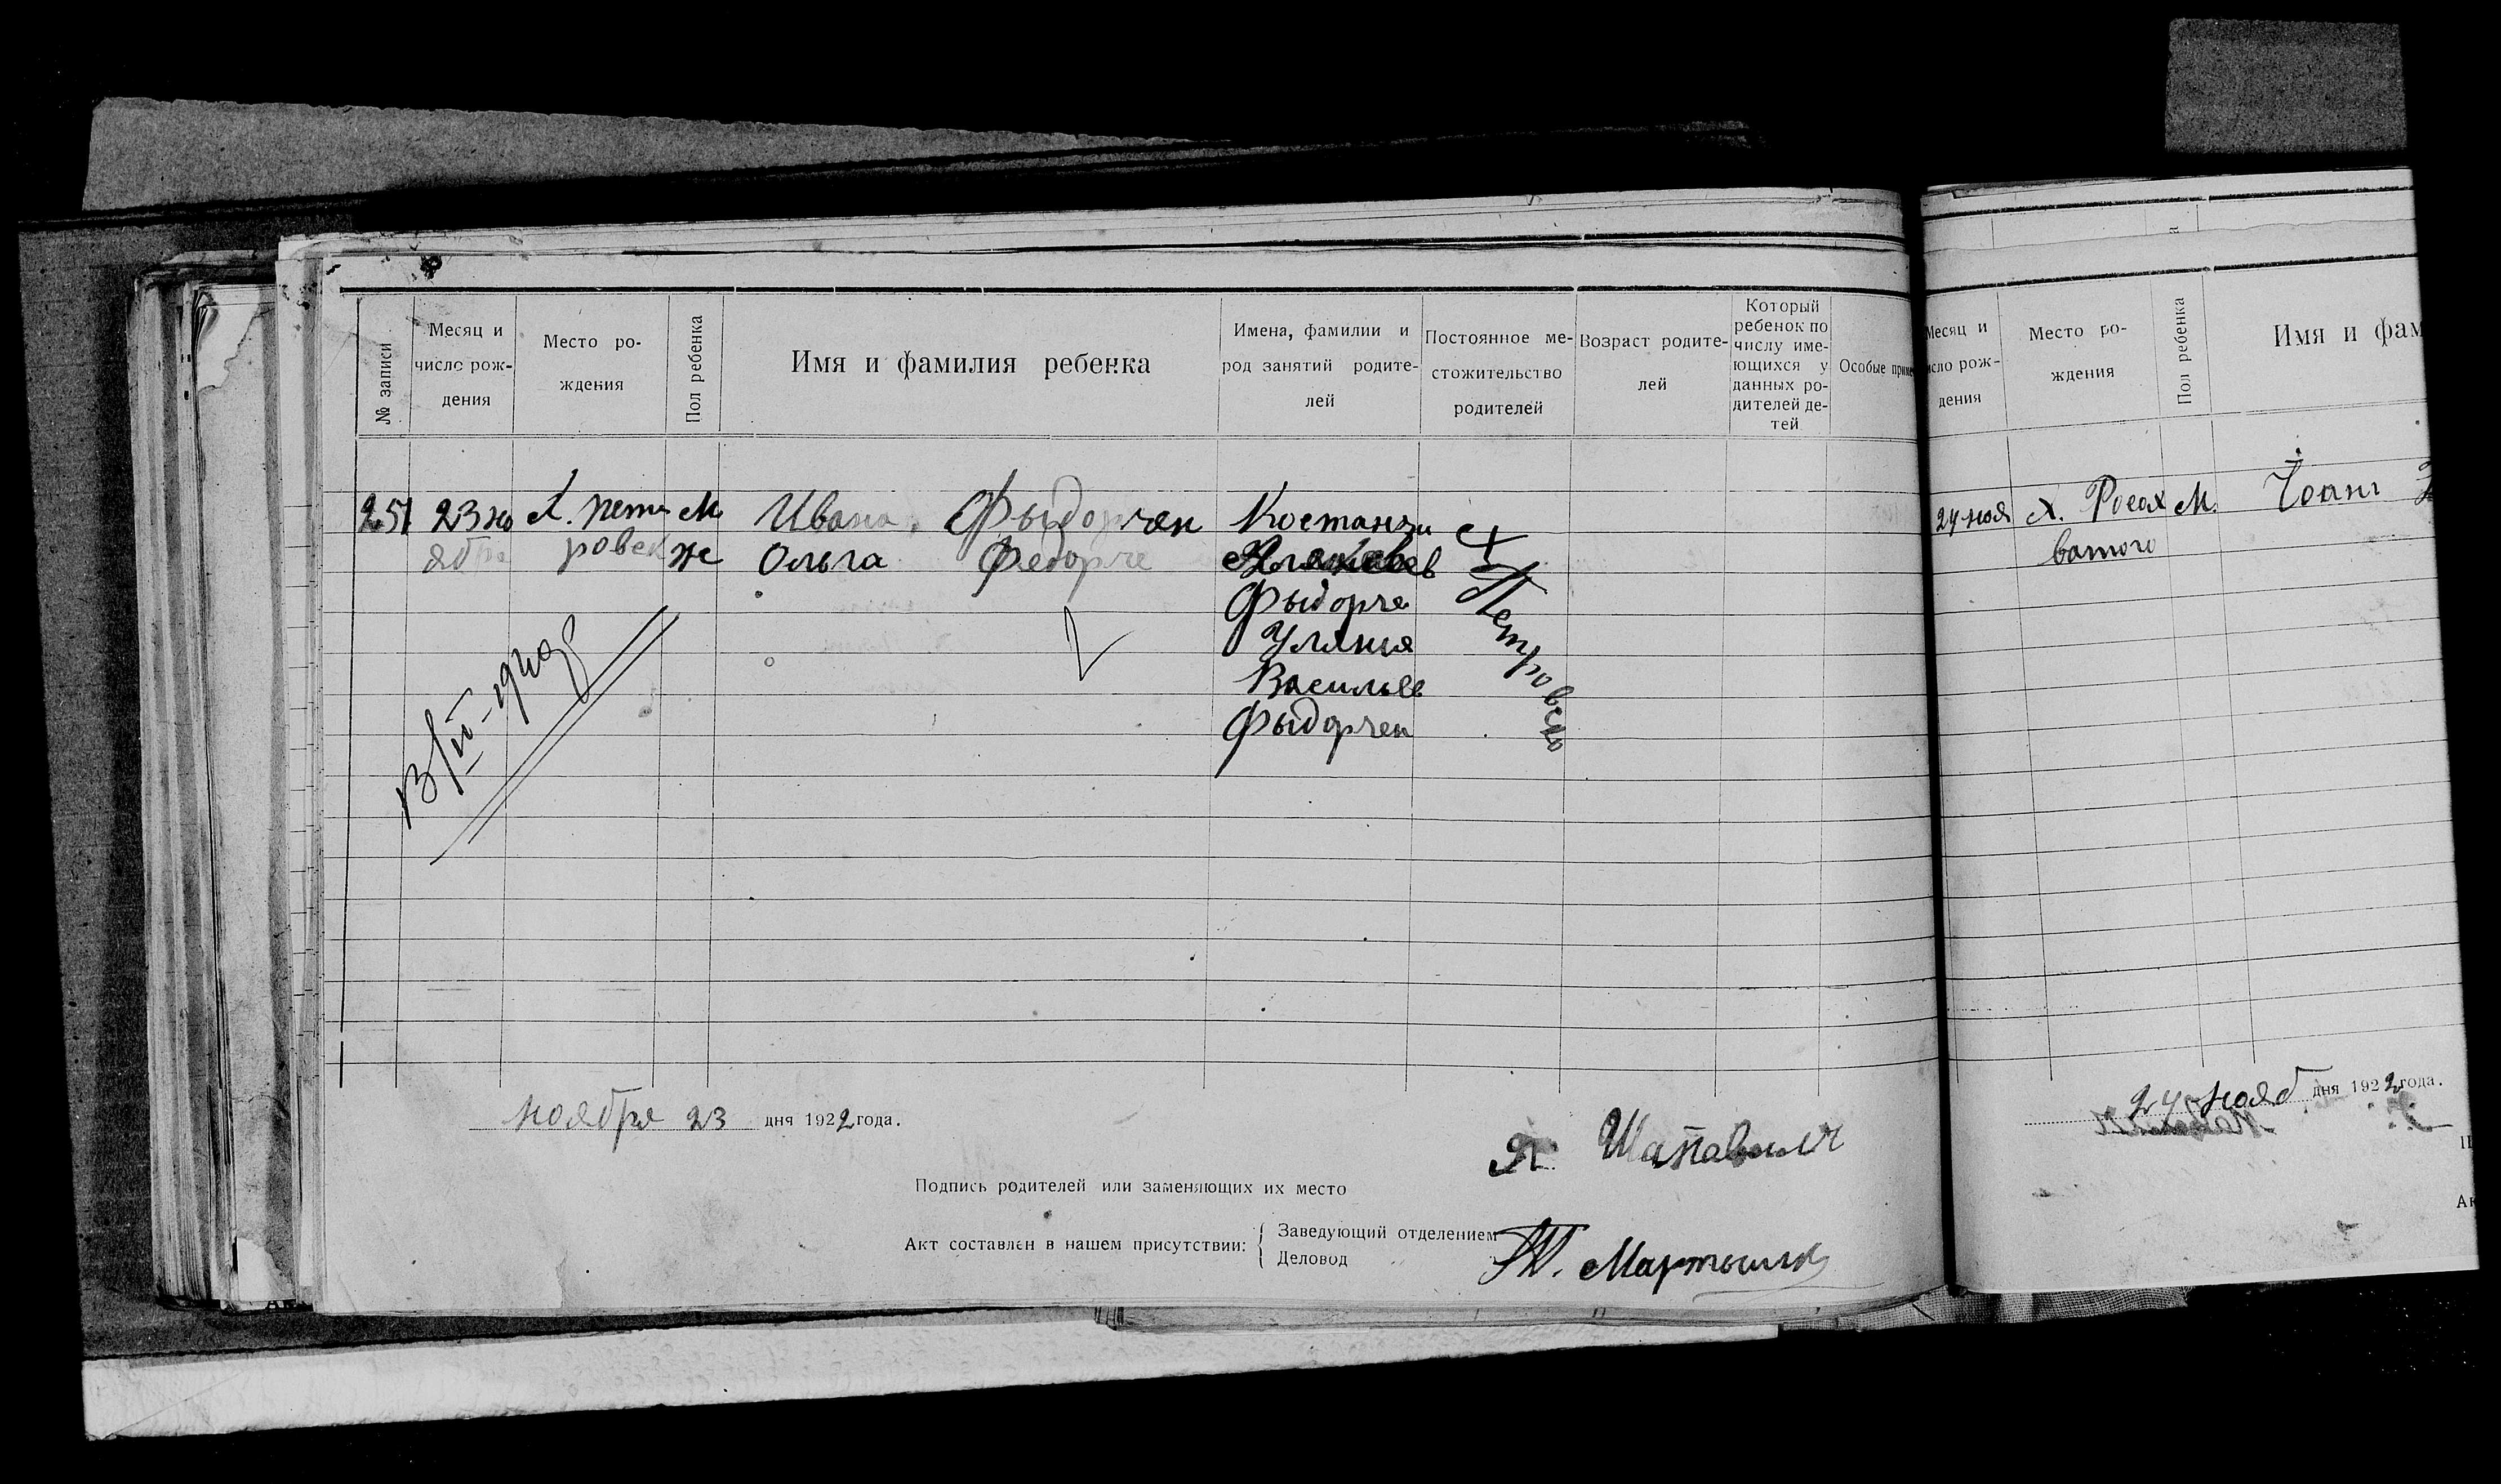 № записи
Месяц и
число рож-
дения
Место ро-
ждения
Пол ребенка
Имя и фамилия ребенка
Имена, фамилии и
род занятий родите-
лей
Постоянное ме-
стожительство
родителей
Возраст родите-
лей
Который
ребенок по
числу име-
ющихся у
данных ро-
дителей де-
тей
Особые приме
251 23 но х. петт м Ивана Фыдорчен Костанти
ября ровск ж Ольга Федорче
Фыдорче
Уляния
Василье
Фыдорчен
х Петровско
ноября 23 дня 1922 года.
Подпись родителей или заменяющих их место
Акт составлен в нашем присутствии:
Заведующий отделением
Деловод
Месяц и
исло рож-
дения
Место ро-
ждения
Пол ребенка
Имя и фам
24 ноя х. Рогах м. Иоанн
ватого
24 нояб дня 1922 года.